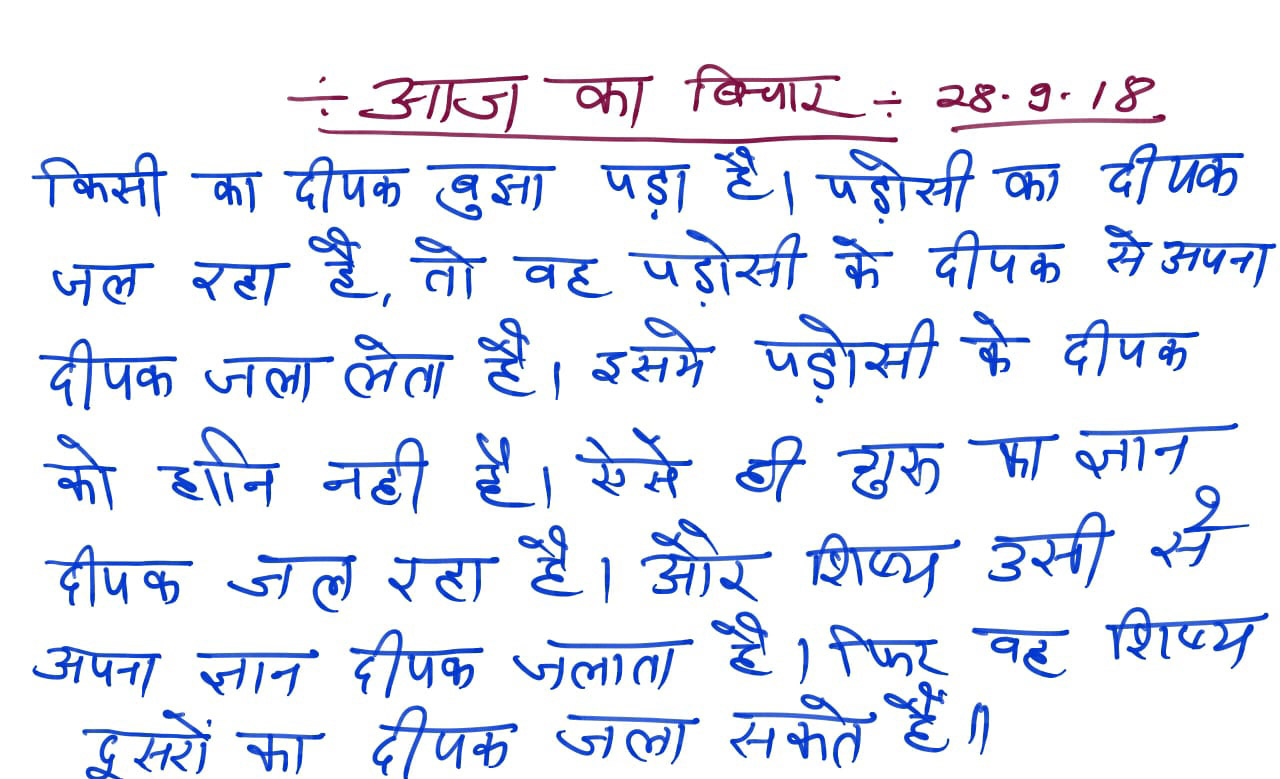 ÷ आज का बिचार ÷ 28.9.18
किसी का दीपक बुझा पड़ा है। पड़ोसी का दीपक
जल रहा है, तो वह पड़ोसी के दीपक से अपना
दीपक जला लेता है। इसमे पड़ोसी के दीपक
को हानि नही है। ऐसे ही गुरु का ज्ञान
दीपक जल रहा है। और शिष्य उसी से
अपना ज्ञान दीपक जलाता है। फिर वह शिष्य
दूसरों का दीपक जला सकते हैं॥